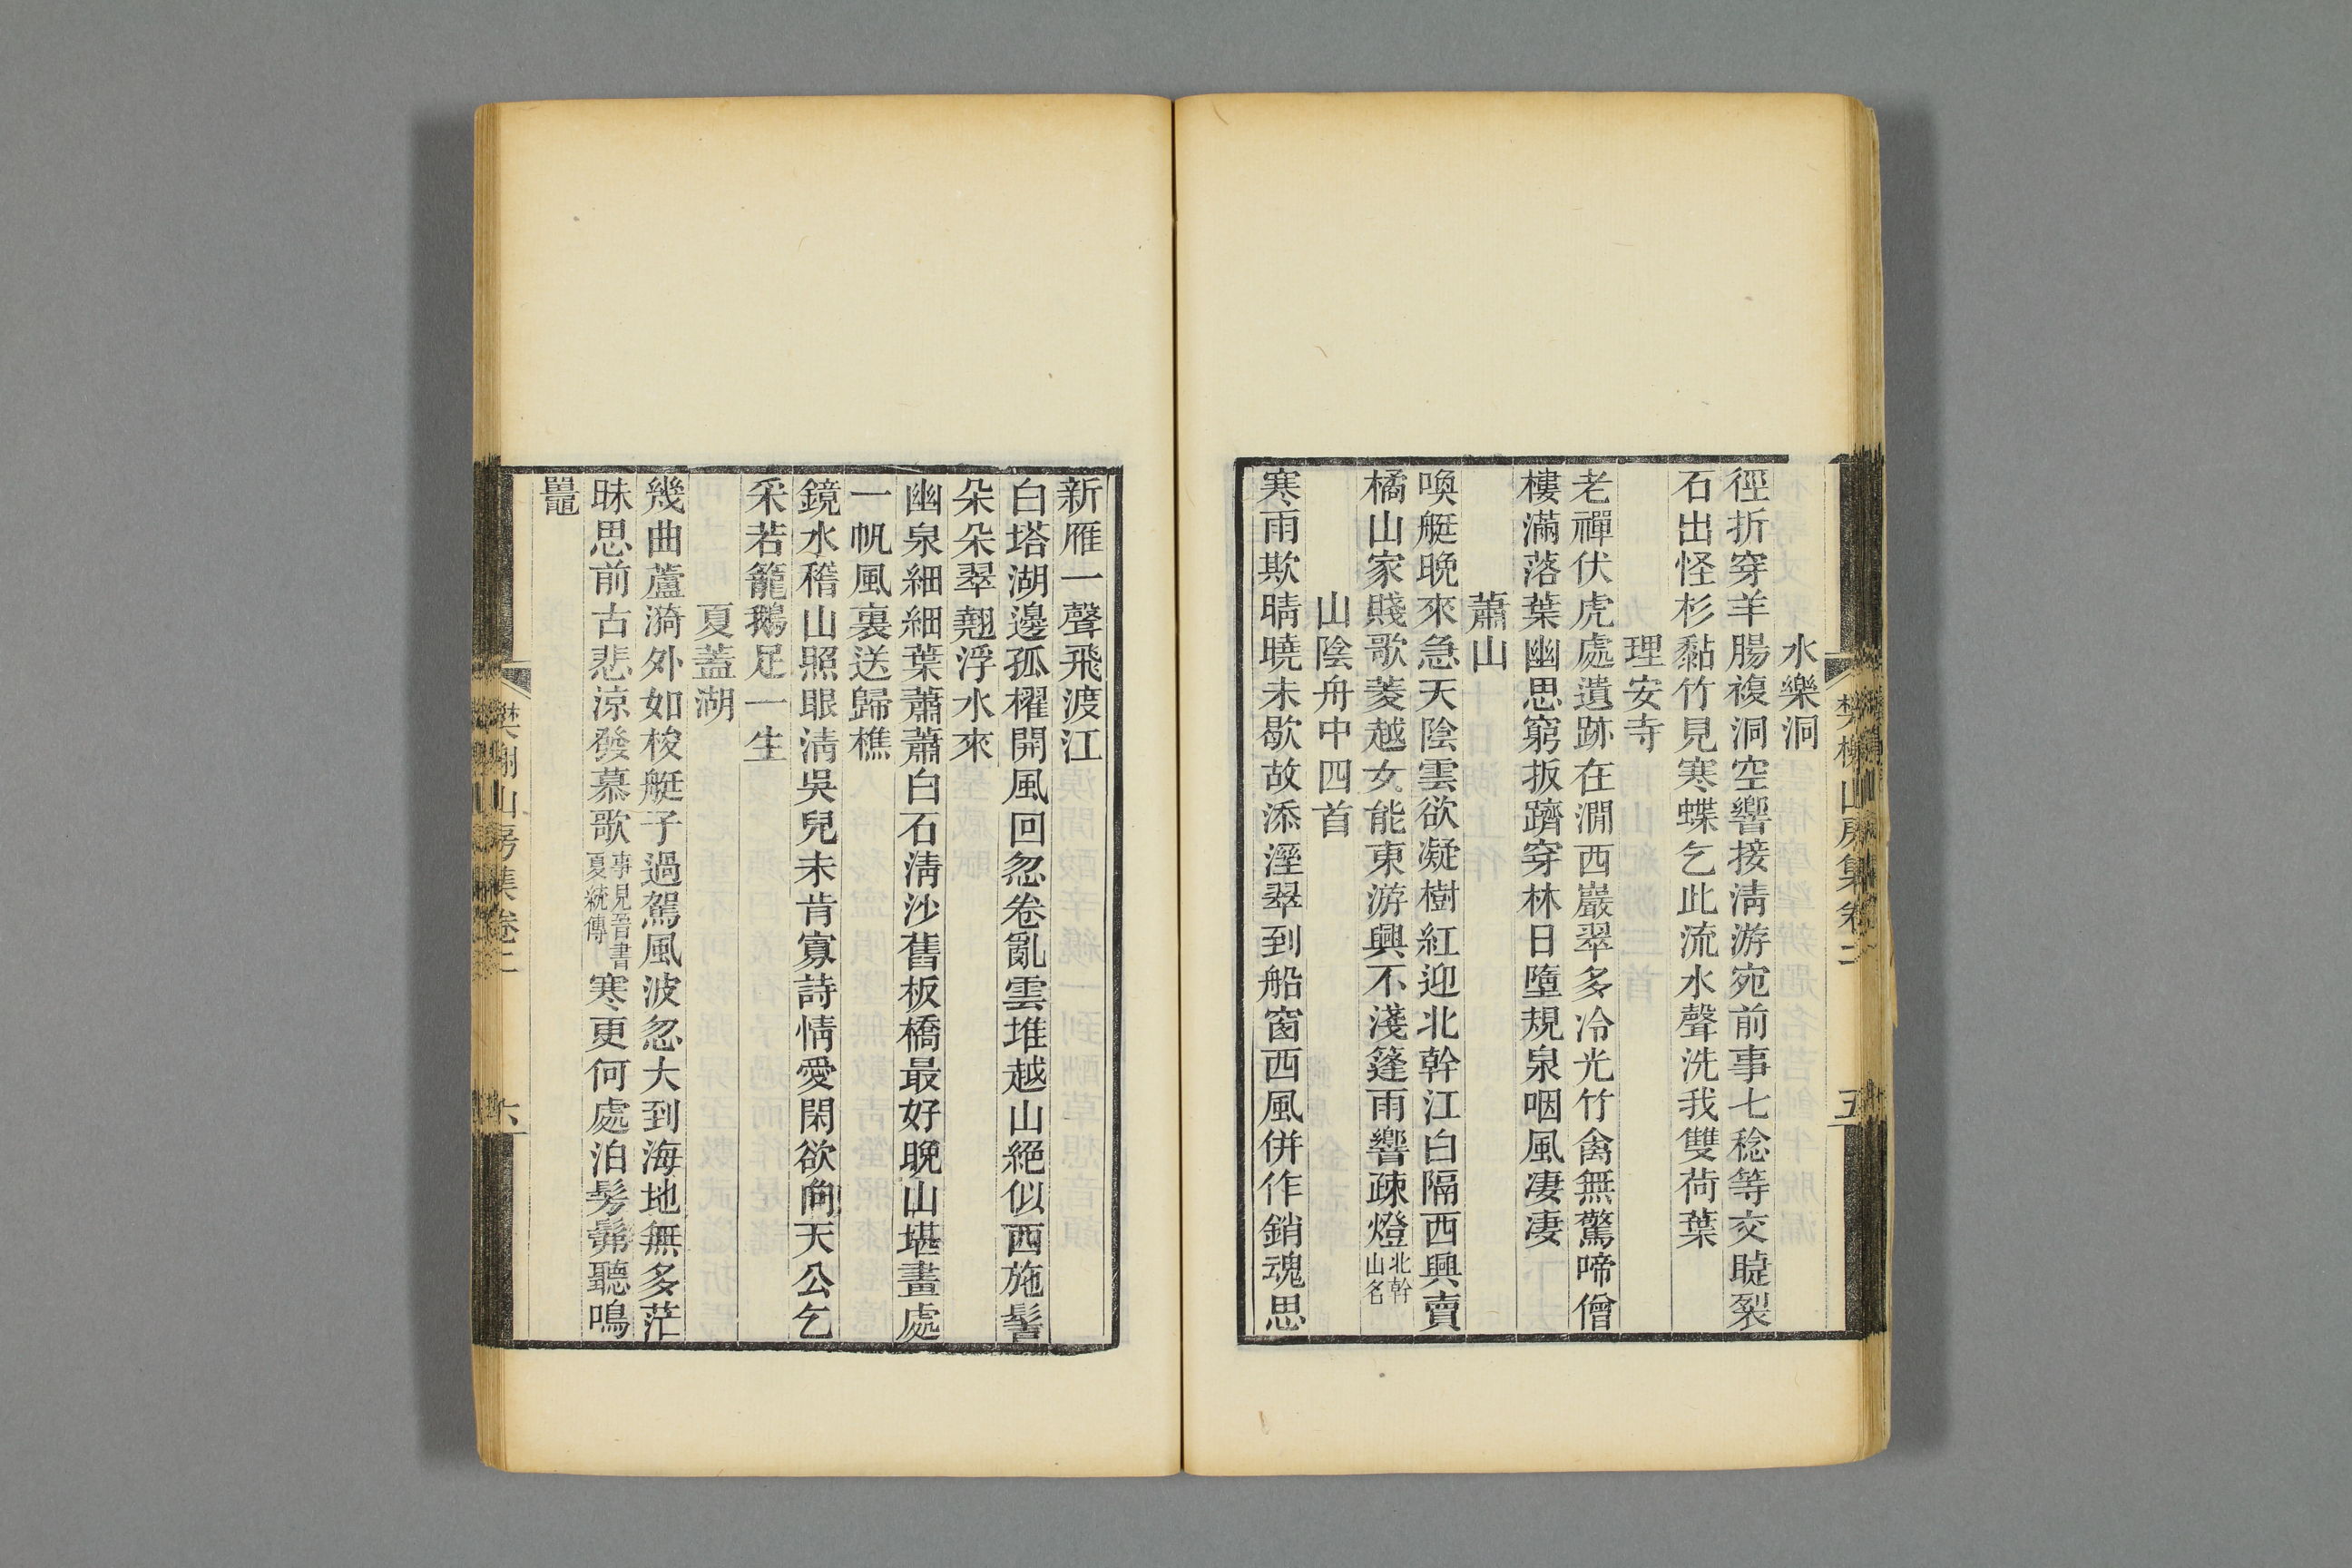 水樂洞
徑折穿羊腸複洞空響接清游宛前事七稔等交睫裂
石出怪杉黏竹見寒蝶乞此流水聲洗我雙荷葉
理安寺
老禪伏虎處遺跡在澗西巖翠多冷光竹禽無驚啼僧
樓滿落葉幽思窮扳躋穿林日墮規泉咽風凄凄
蕭山
喚艇晚來急天陰雲欲凝樹紅迎北幹江白隔西興賣
橘山家賤歌菱越女能東游興不淺篷雨響疎燈北幹山名
山陰舟中四首
寒雨欺晴曉未歇故添溼翠到船窗西風併作銷魂思
樊榭山房集卷二
五
新雁一聲飛渡江
白塔湖邊孤櫂開風回忽卷亂雲堆越山絕似西施髻
朵朵翠翹浮水來
幽泉細細葉蕭蕭白石清沙舊板橋最好晚山堪畫處
一帆風裏送歸樵
鏡水稽山照眼清吳兒未肯寡詩情愛閑欲向天公乞
采若籠鵝足一生
夏蓋湖
幾曲蘆漪外如梭艇子過駕風波忽大到海地無多茫
昧思前古悲涼發慕歌事見晉書夏統傳寒更何處泊髣髴聽鳴
鼉
樊榭山房集卷二
六